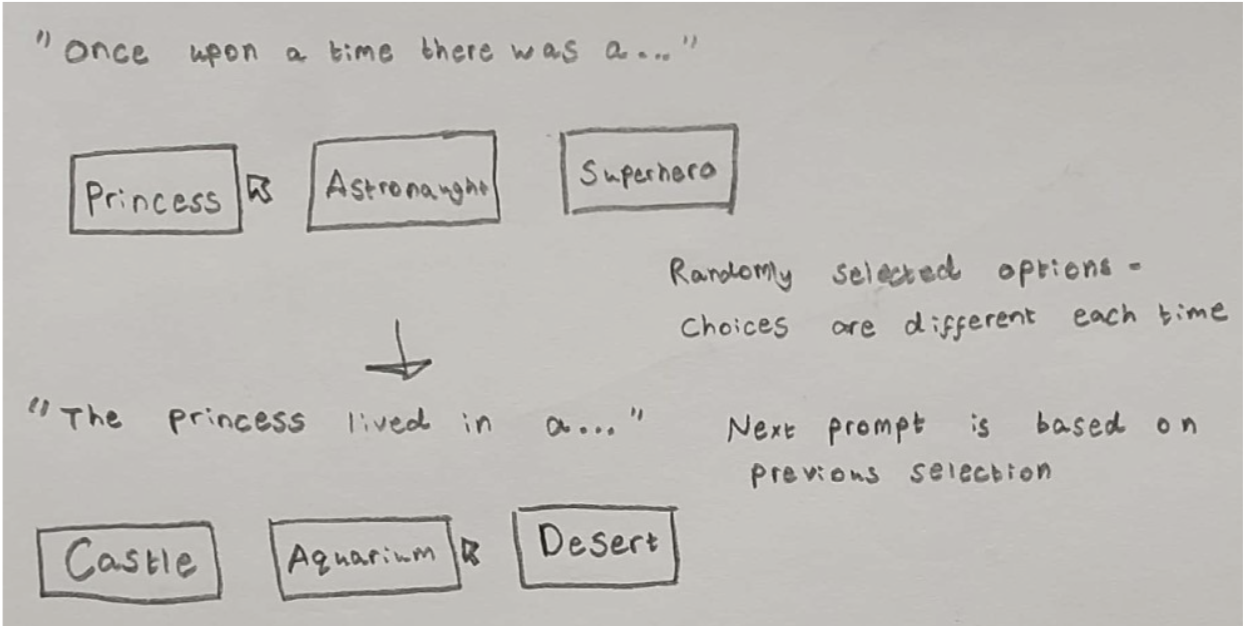 "Once upon a time there was a..."
Princess
Astronaught
Superhero
Randomly selected options -
Choices are different each time
"The princess lived in a..."
Next prompt is based on
previous selection
Castle
Aquarium
Desert